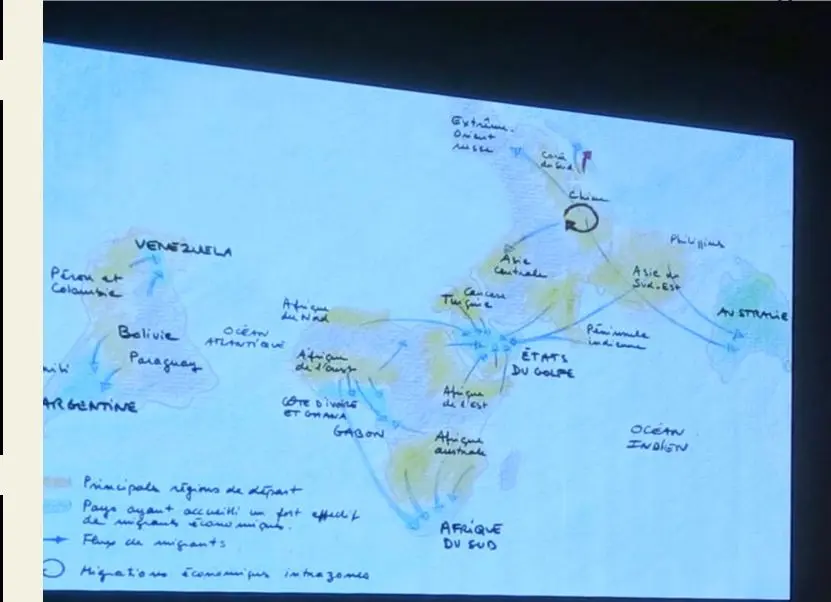 Extrême-
Orient
russe
Corée
du Sud
Chine
Philippines
Asie
Centrale
Asie du
Sud-Est
VENEZUELA
Pérou et
Colombie
Caucase
Turquie
AUSTRALIE
Afrique
du Nord
OCÉAN
ATLANTIQUE
Bolivie
Paraguay
Péninsule
indienne
ÉTATS
DU GOLFE
Afrique
de l'Ouest
Afrique
de l'Est
ARGENTINE
CÔTE D'IVOIRE
ET GHANA
GABON
Afrique
australe
OCÉAN
INDIEN
Principales régions de départ
Pays ayant accueilli un fort effectif
de migrants économiques.
Flux de migrants
AFRIQUE
DU SUD
Migrations économiques intrazones